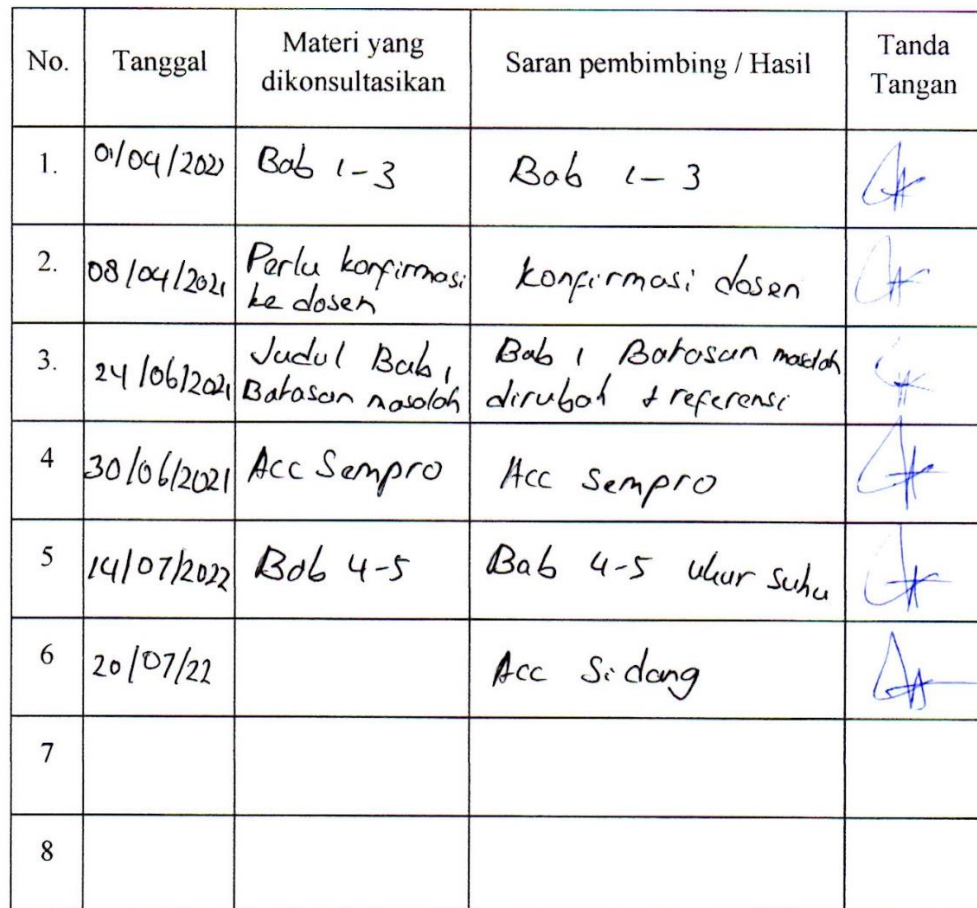 No. Tanggal Materi yang dikonsultasikan Saran pembimbing / Hasil Tanda Tangan
1. 01/04/2021 Bab 1-3 Bab 1-3
2. 08/04/2021 Perlu konfirmasi ke dosen konfirmasi dosen
3. 24/06/2021 Judul Bab 1, Batasan masalah Bab 1 Batasan masalah dirubah + referensi
4 30/06/2021 Acc Sempro Acc Sempro
5 14/07/2022 Bab 4-5 Bab 4-5 ukur suhu
6 20/07/22 Acc Sidang
7
8